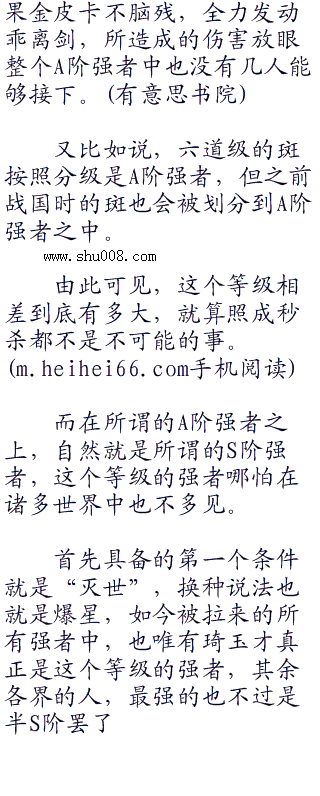 果金皮卡不脑残，全力发动
乖离剑，所造成的伤害放眼
整个A阶强者中也没有几人能
够接下。(有意思书院)
又比如说，六道级的斑
按照分级是A阶强者，但之前
战国时的斑也会被划分到A阶
强者之中。
www.shu008.com
由此可见，这个等级相
差到底有多大，就算照成秒
杀都不是不可能的事。
(m.heihei66.com手机阅读)
而在所谓的A阶强者之
上，自然就是所谓的S阶强
者，这个等级的强者哪怕在
诸多世界中也不多见。
首先具备的第一个条件
就是“灭世”，换种说法也
就是爆星，如今被拉来的所
有强者中，也唯有琦玉才真
正是这个等级的强者，其余
各界的人，最强的也不过是
半S阶罢了